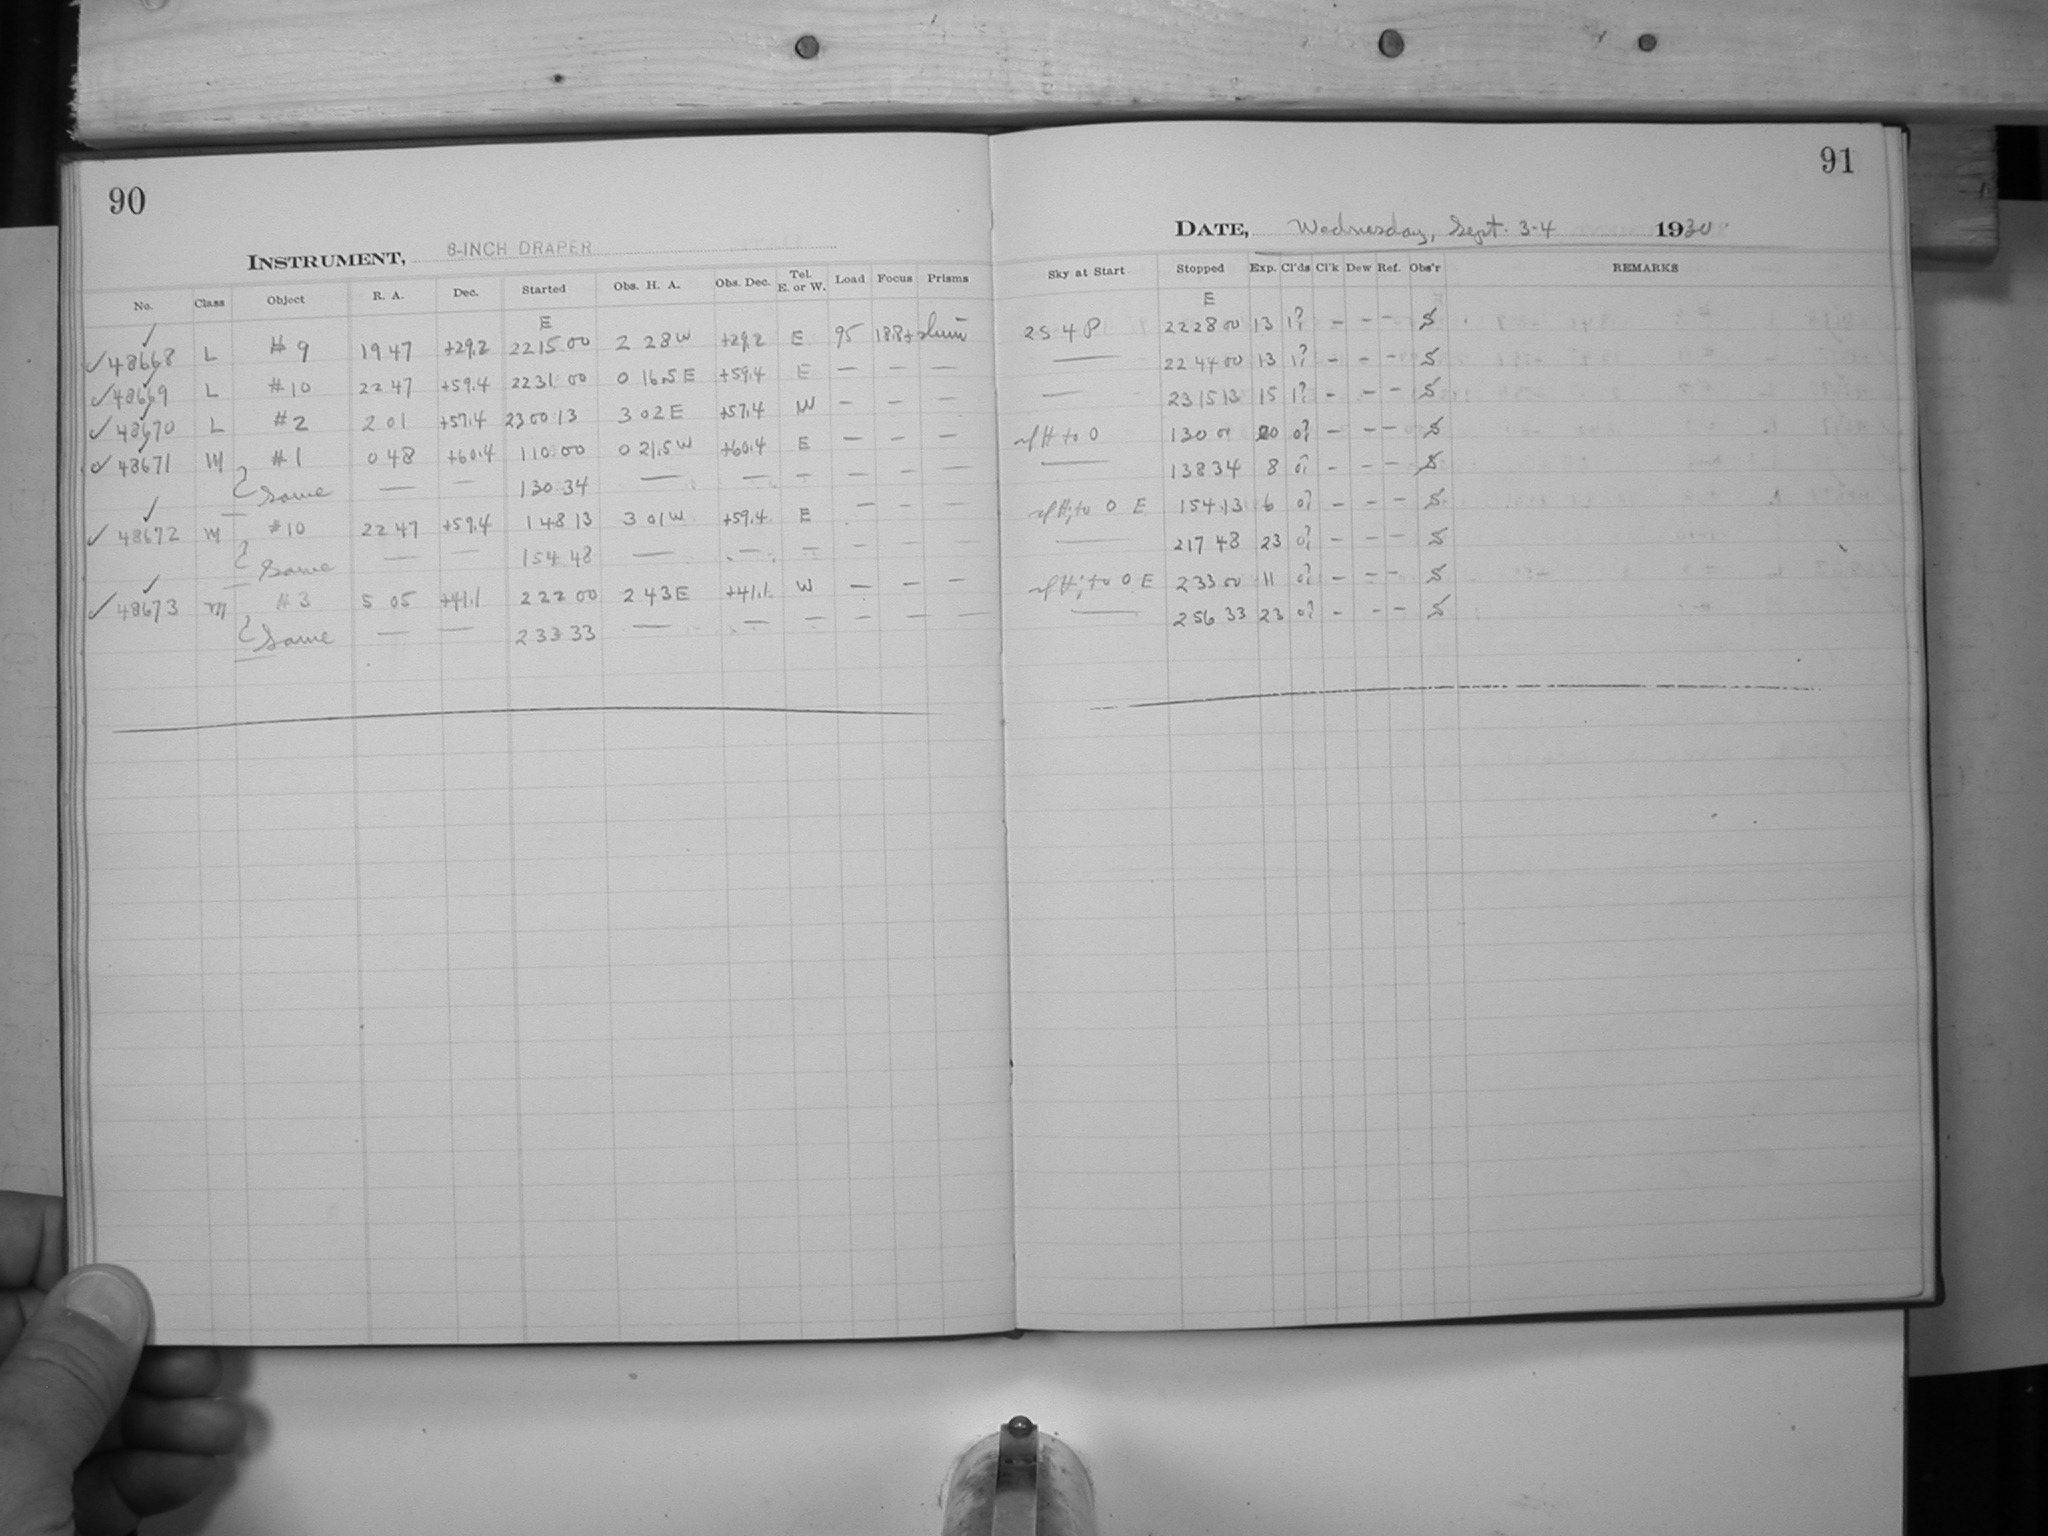 90
INSTRUMENT, 8-INCH DRAPER
No. Class Object R. A. Dec. Started Obs. H. A. Obs. Dec. Tel. E. or W. Load Focus Prisms
E
✓48668 L #9 19 47 +29.2 22 15 00 2 28 W +29.2 E 95 18.8+
✓48669 L #10 22 47 +59.4 22 31 00 0 16.5 E +59.4 E — — —
✓48670 L #2 2 01 +57.4 23 00 13 3 02 E +57.4 W — — —
✓48671 M #1 0 48 +60.4 1 10 00 0 21.5 W +60.4 E — — —
Same — — 1 30 34 — — — — — —
✓48672 M #10 22 47 +59.4 1 48 13 3 01 W +59.4 E — — —
Same — — 1 54 48 — — — — — —
✓48673 M #3 5 05 +41.1 2 22 00 2 43 E +41.1 W — — —
Same — — 2 33 33 — — — — — —
91
DATE, Wednesday, Sept. 3-4 1930
Sky at Start Stopped Exp. Cl'ds Cl'k Dew Ref. Obs'r REMARKS
E
2 S 4 P 22 28 00 13 1? - - - S
— 22 44 00 13 1? - - - S
— 23 15 13 15 1? - - - S
H to 0 1 30 0 20 0? - - - S
— 1 38 34 8 0? - - - S
H; to 0 E 1 54 13 6 0? - - - S
— 2 17 48 23 0? - - - S
H; to 0 E 2 33 00 11 0? - - - S
— 2 56 33 23 0? - - - S